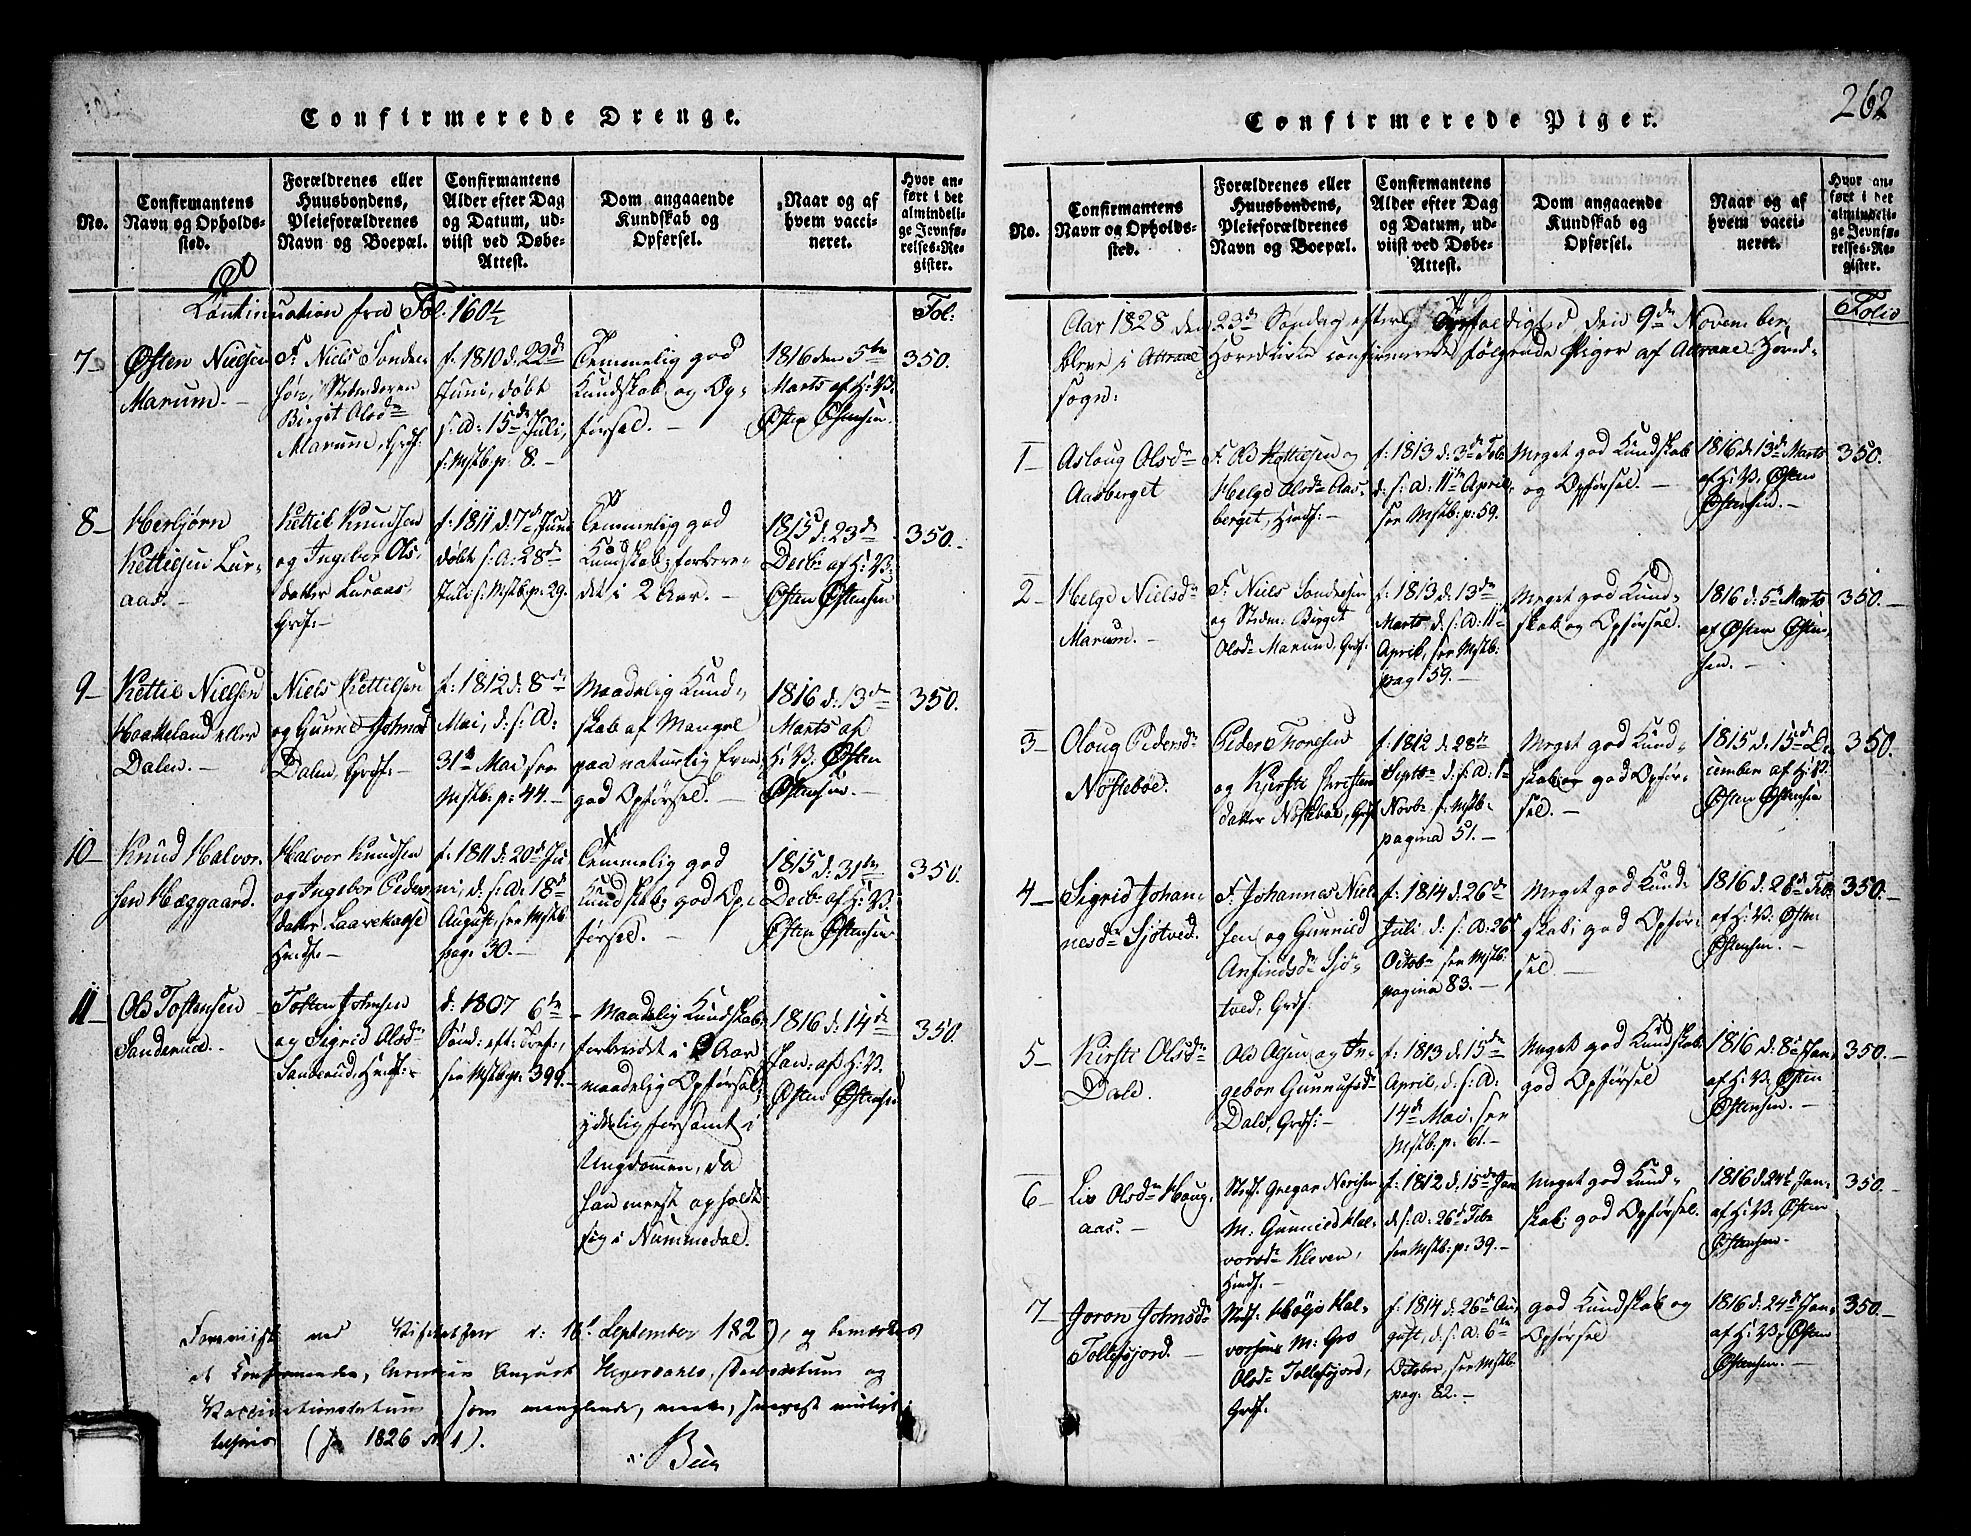 Confirmerede Drenge.
No.
Confirmantens
Navn og Opholds-
sted.
Forældrenes eller
Huusbondens,
Pleieforældrenes
Navn og Boepæl.
Confirmantens
Alder efter Dag
og Datum, ud-
viist ved Døbe-
Attest.
Dom angaaende
Kundskab og
Opførsel.
Naar og af
hvem vacci-
neret.
Hvor an-
ført i det
almindeli-
ge Jevnfø-
relses-Re-
gister.
Continuation fra Fol. 160½
Fol:
7
Østen Nielsen
Marum.
F. Niels
Birgit Olsdr
Marum, Grds.
f. 1810 d. 22de
Juni, døbt
s: a: 15de Juli,
s. Mstb. p. 8.
Temmelig god
Kundskab og Op-
førsel.
1816 den 5te
Marts af H. V.
Østen Østensen
350.
8
Herbjørn
Kettilsen Lur-
aas.
Kettil Knudsen
og Ingebor Ols-
datter Luraas,
Grds:
f: 1811 d: 7de Juni
døbt s: a: 28de
Juli s. Mstb. p: 29.
Temmelig god
Kundskab; forbere-
det i 2 Aar.
1815 d: 23de
Decbr af H: V:
Østen Østensen
350.
9
Kettil Nielsen
Haakeland eller
Dalen.
Niels Kettilsen
og Gunne Johns
Dalen, Grds:
f: 1812 d: 8de
Mai, d: s: A:
31te Mai see
Mstb: p: 44.
Maadelig Kund-
skab af Mangel
paa naturlig Evne
god Opførsel.
1816 d. 13de
Marts af
H: V: Østen
Østensen.
350.
10
Knud Halvor-
sen Hæggaard.
Halvor Knudsen
og Ingebor Peders
datter Laavekaase
Hmds.
f: 1811 d: 20de Ju
ni, d. s: a: 18de
August, see Mstb.
pag. 30.
Temmelig god
Kundskab; god Op-
førsel.
1815 d: 31te
Decbr af H: V:
Østen Østensen
350.
11
Ole Tostensen
Sanderud.
Tosten Johnsen
og Sigrid Olsdr
Sanderud, Hmds:
d: 1807 6te
Sønd: eft: Tref:,
see Mstb p: 399.
Maadelig Kundskab,
forberedet i 2 Aar
maadelig Opførsel,
ydelig forsømt i
Ungdommen, da
han meest opholdt
sig i Nummedal.
1816 d: 14de
Jan: af H: V.
Østen Østensen
350.
Foreviist ved Visitatsen d: 16d September 182 , og bemærkes
at Confirmanden, Christian August Hegerdahls, og
Vaccinationsdatum, som manglende, maae, snarest muligt
(for 1826 N. 1).
262
Confirmerede Piger.
No.
Confirmantens
Navn og Opholds-
sted.
Forældrenes eller
Huusbondens,
Pleieforældrenes
Navn og Boepæl.
Confirmantens
Alder efter Dag
og Datum, ud-
viist ved Døbe-
Attest.
Dom angaaende
Kundskab og
Opførsel.
Naar og af
hvem vacci-
neret.
Hvor an-
ført i det
almindeli-
ge Jevnfø-
relses-Re-
gister.
Folio
Aar 1828 den 23de Søndag efter Trefoldighed, den 9de November
bleve i Attraae Hovedkirke confirmerede følgende Piger af Attraae Hoved-
sogn:
1
Asloug Olsdr
Aasberget
F. Ole Kettilsen og
Helge Olsdr Aas-
berget, Hmds:
f: 1813 d: 3de Febr
d: s: a: 11te April,
see Mstb: p: 59.
Meget god Kundskab
og Opførsel.
1816 d: 13de Marts
af H: V: Østen
Østensen.
350.
2
Helge Nielsdr
Marum.
F. Niels Sondresen
og Birget
Olsdr Marum, Grds:
f: 1813 d: 13de
Marts d: s: a: 11te
April, see Mstb:
pag 59.
Meget god Kund-
skab og Opførsel.
1816 d: 5te Marts
af Østen Østen-
sen.
350.
3
Oloug Pedersdr
Nøstebøe.
Peder Thoresen
og Kjersti Christens
datter Nøstebøe, Grds
f: 1812 d: 28de
Septbr d: s: a: 1te
Novbr s: Mstb:
pagina 51.
Meget god Kund-
skab og god Opfør-
sel.
1815 d: 15de De-
cember af H: V:
Østen Østensen
350.
4
Sigrid Johan-
nesdr Sjøtved.
F. Johannes Niel
sen og Gunnild
Anfindsdr Sjø-
tved, Grds.
f: 1814 d: 26de
Juli d: s: a: 26de
Octobr see Mstb:
pagina 83.
Meget god Kund-
skab; god Opfør-
sel.
1816 d. 26de Feb:
af H: V: Østen
Østensen.
350.
5
Kirsti Olsdr
Dale.
Ole Olsen og In-
gebor Gunnufsdr
Dale, Grds:
f: 1813 d: 15de
April, d: s: A:
14de Mai, see
Mstb. p. 61.
Meget god Kundskab
god Opførsel
1816 d: 8de Jan.
af H: V. Østen
Østensen.
350.
6
Liv Olsdr Houg-
aas.
Stedf. Gregar Nerisen
M: Gunnild Hal-
vorsdr Kleven,
Hmds.
f: 1812 d. 15de Jan
d. s: a: 26de Febr
see Mstb: p: 39.
Meget god Kund-
skab; god Opførsel.
1816 d. 24de Jan-
af H: V. Østen
Østensen.
350.
7
Joron Johnsdr
Tollefsjord.
Stedf. Høljo Hal-
vorsens M: Gro
Olsdr Tollefsjord,
Grds.
f: 1814 d: 26de Au-
gust, d. s. a. 6te
October, see Mstb.
pag: 82.
god Kundskab og
Opførsel
1816 d: 24de Jan-
af H: V. Østen
Østensen.
350.